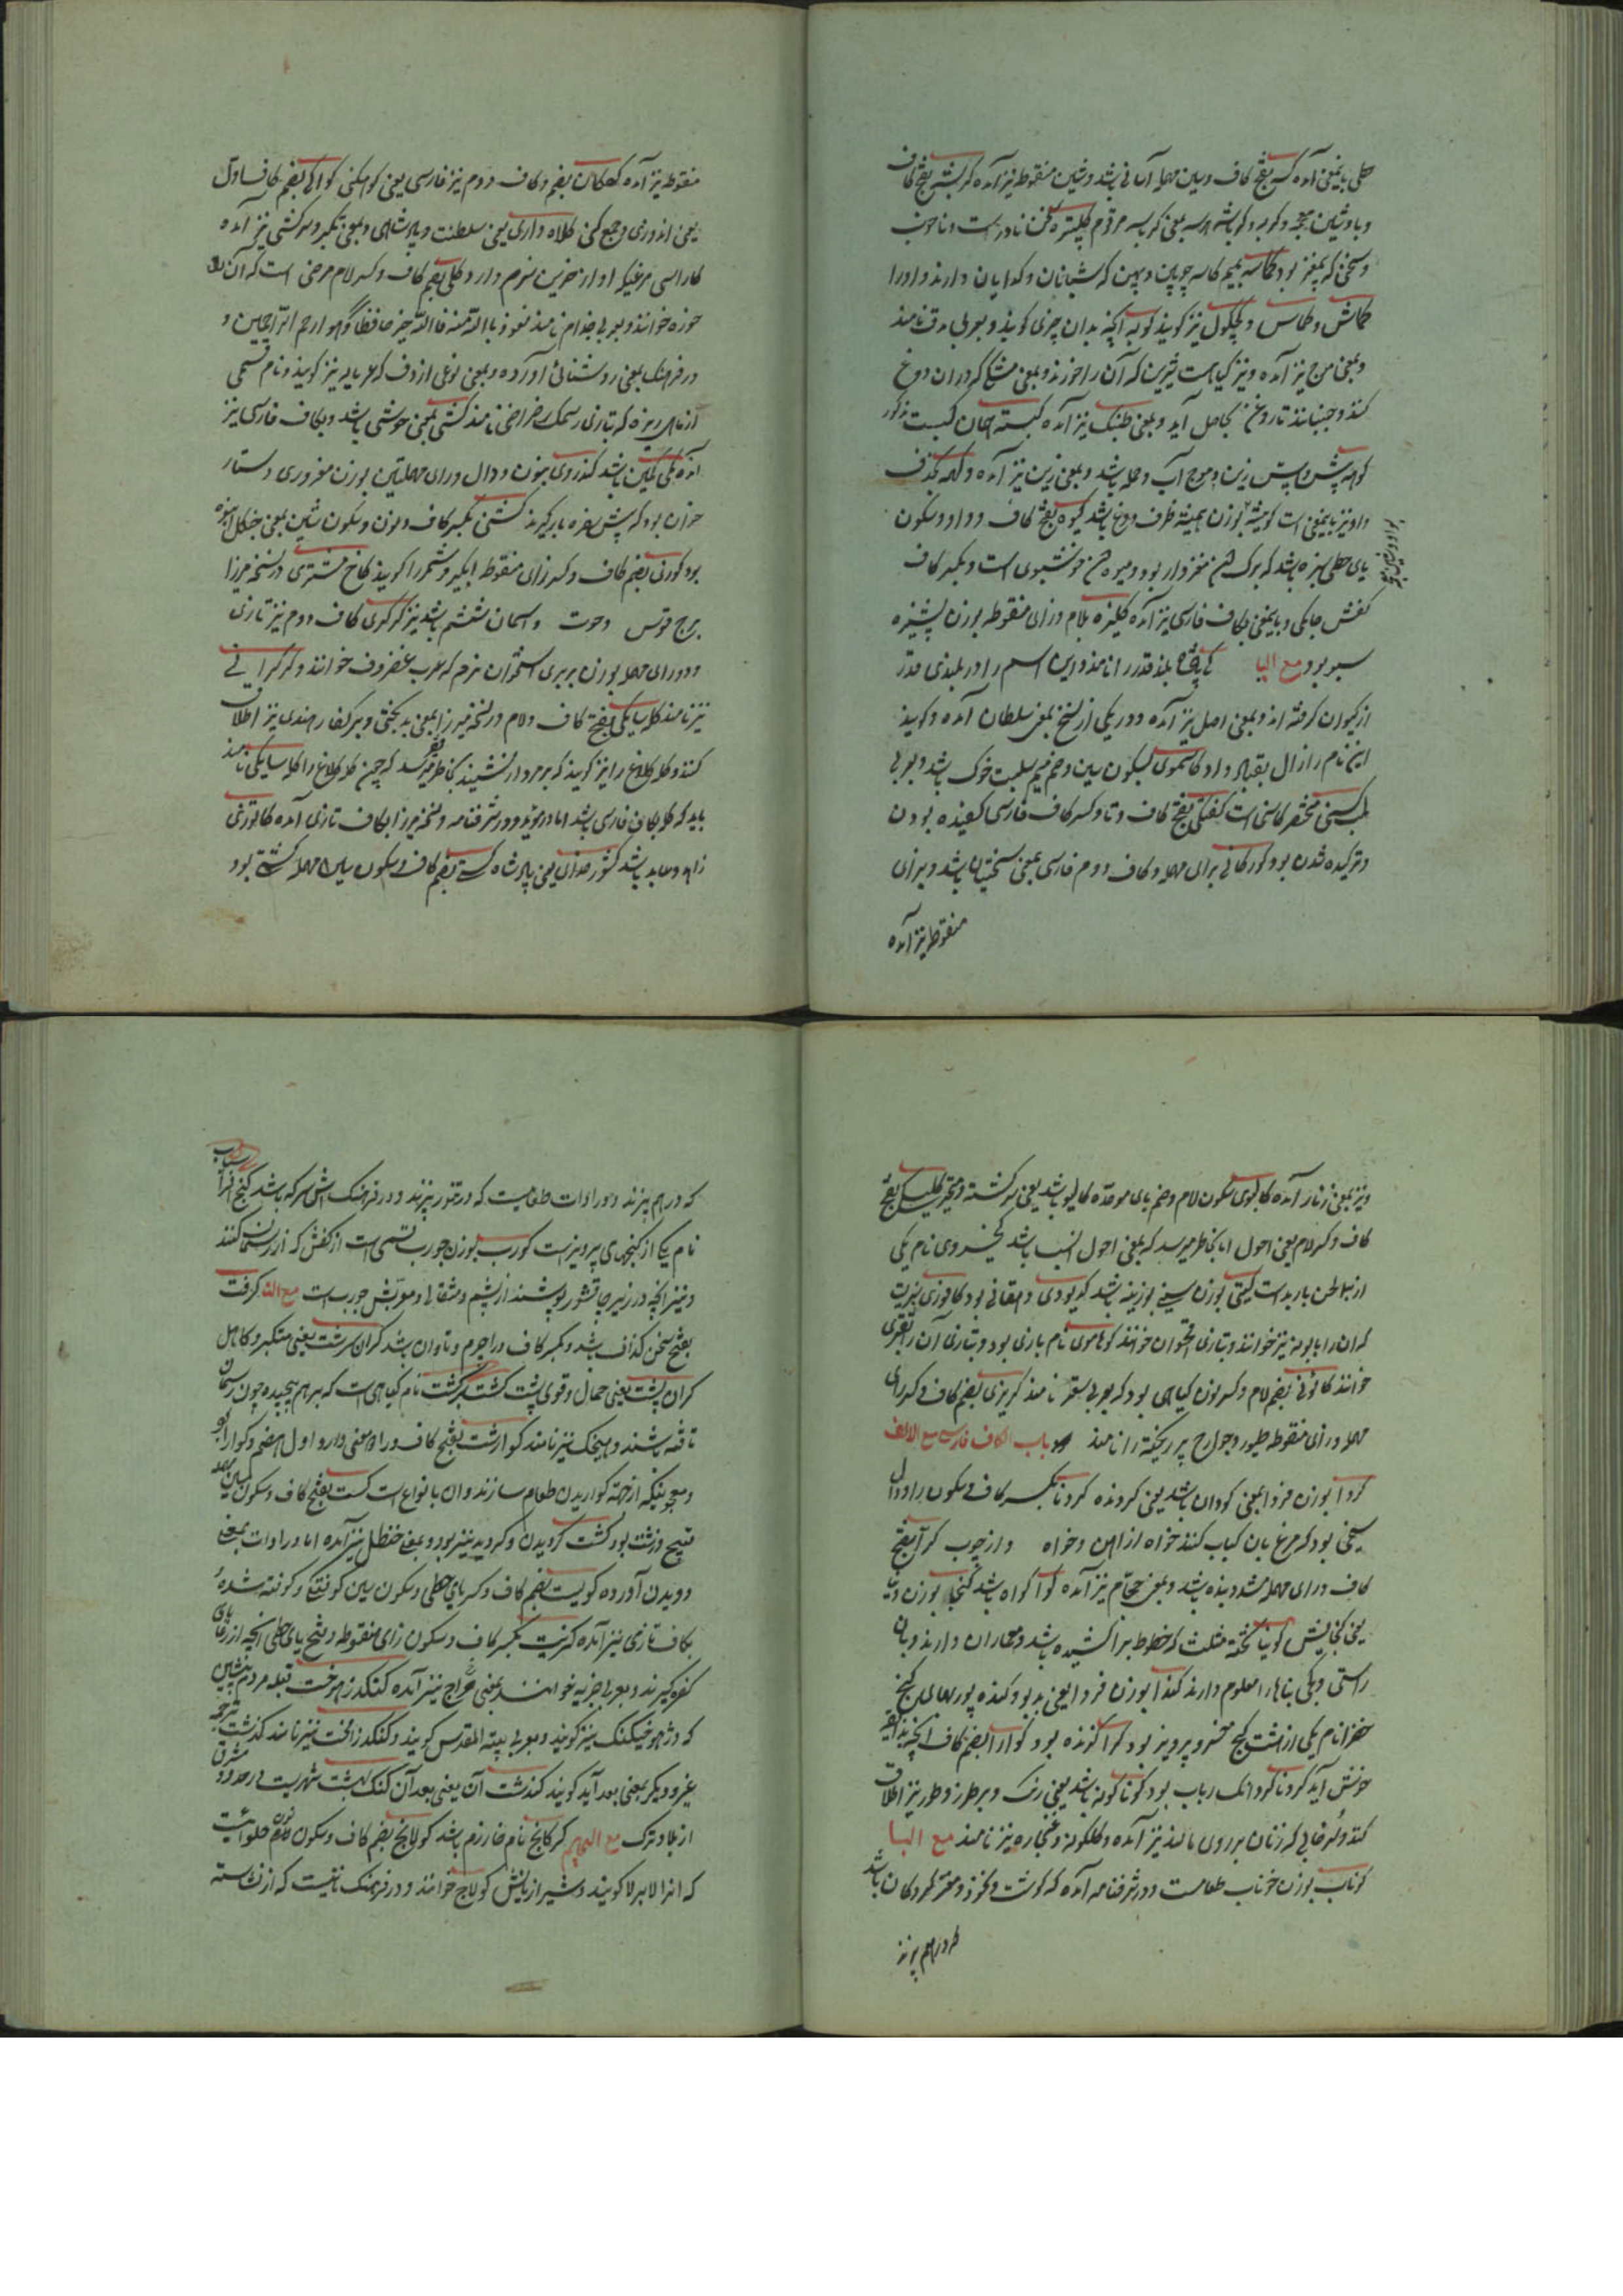 حطی باینمعنی آمده کسر بفتح کاف وسین مهمله آسانی باشد وشین منقوطه نیز آمده کربشه بفتح کاف
وبا وشین معجمه وکربسه وکرباشه بمعنی کربسه مرقوم کلپتره سخن نادرست وناخوب
وسخنی که بیمغز بود کاسه چوپان وپهن که شبانان وگدایان دارند واورا
کماش وکماس وکچکول نیز گویند کوبه آنچه بدان چیزی کوبند وبعربی مدقه نامند
وبمعنی موج نیز آمده ونیز گیاهیست شیرین که آن را خورند وبمعنی مشکی که در آن دوغ
کنند وجنبانند تا روغن حاصل آید وبمعنی طنبک نیز آمده کبسته همان کبست مذکور
کوهه پیش وپس زین وموج آب وحمله باشد وبمعنی زین نیز آمده وکهه بحذف
واو نیز باینمعنی است بوزن همیشه ظرف دوغ باشد کیوه بفتح کاف وواو وسکون
یای حطی سبزه باشد که برگ آن مغزدار بود ومیوه آن خوشبوی است وبکسر کاف
کفش جامگی وباینمعنی بکاف فارسی نیز آمده کلیزه بلام وزای منقوطه بوزن پشیزه
سبو بود مع الیا کی پادشاه بلند قدر را نامند واین اسم را در بلندی قدر
از کیوان گرفته اند وبمعنی اصل نیز آمده ودر یکی از نسخ بمعنی سلطان آمده وگویند
این نام را زال بقباد داد کاسموی بسکون سین وضم میم سبلت خوک باشد وبعربی
کاسنی مختصر کاسنی است کفتگی بفتح کاف وتا وکسر کاف فارسی کفیده بودن
وترکیده شدن بود کورکانی برای مهمله وکاف دوم فارسی بمعنی سختیان باشد وبزای
منقوطه نیز آمده
منقوطه نیز آمده بضم وکاف دوم نیز فارسی یعنی کوه کنی بضم کاف اول
یعنی اندوزی وجمع کنی کلاه داری یعنی سلطنت وپادشاهی وبمعنی تکبر وسرکشی نیز آمده
مرغیکه او از خوردن نرم دارد کلی بضم کاف وکسر لام مرضی است که آن را
خوره خوانند وبعربی جذام نامند نعوذ بالله منه فالله خیر حافظا وهو ارحم الراحمین و
در فرهنگ بمعنی روستائی آورده وبمعنی نوعی از دف که عربانه نیز گویند ونام قسمی
از ماهی ریزه که بتازی سمک رضراضی نامند کشی بمعنی خوشی باشد وبکاف فارسی نیز
آمده کمی کمین باشد کندوری بنون ودال ورای مهملتین بوزن مغروری دستار
خوان بود که پیش سفره بازگیرند کشنی بکسر کاف ونون وسکون شین بمعنی جنگل انبوه
بود کوزی بضم کاف وکسر زای منقوطه آبگیر وشمر را گویند کاخ مشتری در نسخه میرزا
برج قوس وحوت وآسمان ششم باشد نیز کرکری کاف دوم نیز تازی
ودو رای مهمله بوزن بربری استخوان نرم که بعرب غضروف خوانند وکرکرانی
نیز نامند کلاسایکی بفتح کاف ولام در نسخه میرزا بمعنی بدبختی وبر کفار هندی نیز اطلاق
کنند وکله کلاغ را نیز گویند که بر مردار نشیند بخاطر فقیر میرسد که چون کله کلاغ را کلاسایکی نامند
باید که کله بکاف فارسی باشد اما در مؤید ودر شرفنامه ونسخه میرزا بکاف تازی آمده کاتوزی
زاهد وعابد باشد کشور خدای یعنی پادشاه کستی بضم کاف وسکون سین مهمله کشتی بود
ونیز بمعنی زنار آمده کالبوی بسکون لام وضم بای موحده کالیو باشد یعنی سرگشته ومتحیر کلیک بفتح
کاف وکسر لام یعنی احول اما بخاطر میرسد که بمعنی احول انسب باشد کیخسروی نام یکی
از سی لحن باربد است کیتی بوزن باشد کدیوری دهقانی بود کافوری
که آن را بابونه نیز خوانند وبتازی اقحوان خوانند کوهاموی نام بازی بود وبتازی آن را بقیری
خوانند بضم لام وکسر نون گیاهی بود که بعربی سعتر نامند کریزی بضم کاف وکسر رای
مهمله وزای منقوطه طیور وجوارح پر ریخته را نامند باب الکاف فارسی مع الالف
گردا بوزن فردا بمعنی گردان باشد یعنی گردنده گردنا بکسر کاف وسکون را ودال
سیخی بود که مرغ بآن کباب کنند خواه از آهن وخواه واز چوب گرا بفتح
کاف ورای مهمله مشدد بنده باشد وبمعنی حجام نیز آمده گوا گواه باشد گنجا بوزن
یعنی گنجایش گونیا تخته مثلث که خطوط بر آن کشیده باشد ومعماران دارند وبآن
راستی وکجی بناها را معلوم دارند گندا بوزن فردا یعنی بدبو وگنده بود گنج
خضرا نام یکی از هشت گنج خسرو پرویز بود گزا گزنده بود گوارا بضم کاف آنچه بذایقه
خوش آید گردنا گردانک رباب بود گونا گونه باشد یعنی رنگ وبر طرز وطور نیز اطلاق
کنند وسرخابی که زنان بر روی مالند نیز آمده وگلگونه وغنجاره نیز نامند مع البا
گوناب بوزن خوناب طعامیست ودر شرفنامه آمده که گوشت وگزر ومغز گردکان باشد
که در هم پزند
که در هم پزند ودر ادات طعامیست که در تنور پزند ودر فرهنگ آش سرکه باشد گنج افرا
سیاب
نام یکی از گنجهای پرویز است گورب بوزن جورب قسمی است از کفش که از ریسمان کنند
ونیز آنچه در زیر چاقشور پوشند از پشم ومثقالی ومعربش جورب است مع التا گرفت
بفتح سخن گذاف باشد وبکسر کاف ورا جرم وتاوان باشد گران سرشت یعنی متکبر وکاهل
گران پشت یعنی حمال وقوی پشت گشت برگشت نام گیاهی است که بر هم پیچیده چون ریسمان
تافته باشند وپیچک نیز نامند گوارشت بضم کاف ورا دو معنی دارد اول هضم وگوارا بود
ومعجونیکه از جهته گواریدن طعام سازند وآن بانواع است گست بفتح کاف وسکون سین مهمله
قبیح وزشت بود گشت گردیدن وگردید نیز بود وبمعنی حنظل نیز آمده اما در ادات بمعنی
دویدن آورده گویست بضم کاف وکسر یای حطی وسکون سین کوفتگی وکوفته شده
بکاف تازی نیز آمده گزیت بکسر کاف وسکون زای منقوطه وفتح یای حطی آنچه از رعایای
کفره گیرند وبعربی جزیه خوانند وبمعنی خراج نیز آمده گنگدز هوخت قبله مردم پیشین
که دژ هوخت گنگ نیز گویند وبعربی بیت المقدس گویند وگنگدز هخت نیز نامند گذشت ترجمه
غیر ودیگر بمعنی بعد آید گویند گذشت آن یعنی بعد آن گنگ بهشت شهریست در حدود مشرق
از بلاد ترک مع الجیم گرگانج نام خوارزم باشد گولانج بضم کاف وسکون نون حلوائیست
که آنرا لابرلا گویند وشیرازیانش گولاج خوانند ودر فرهنگ نانیست که از نشاسته